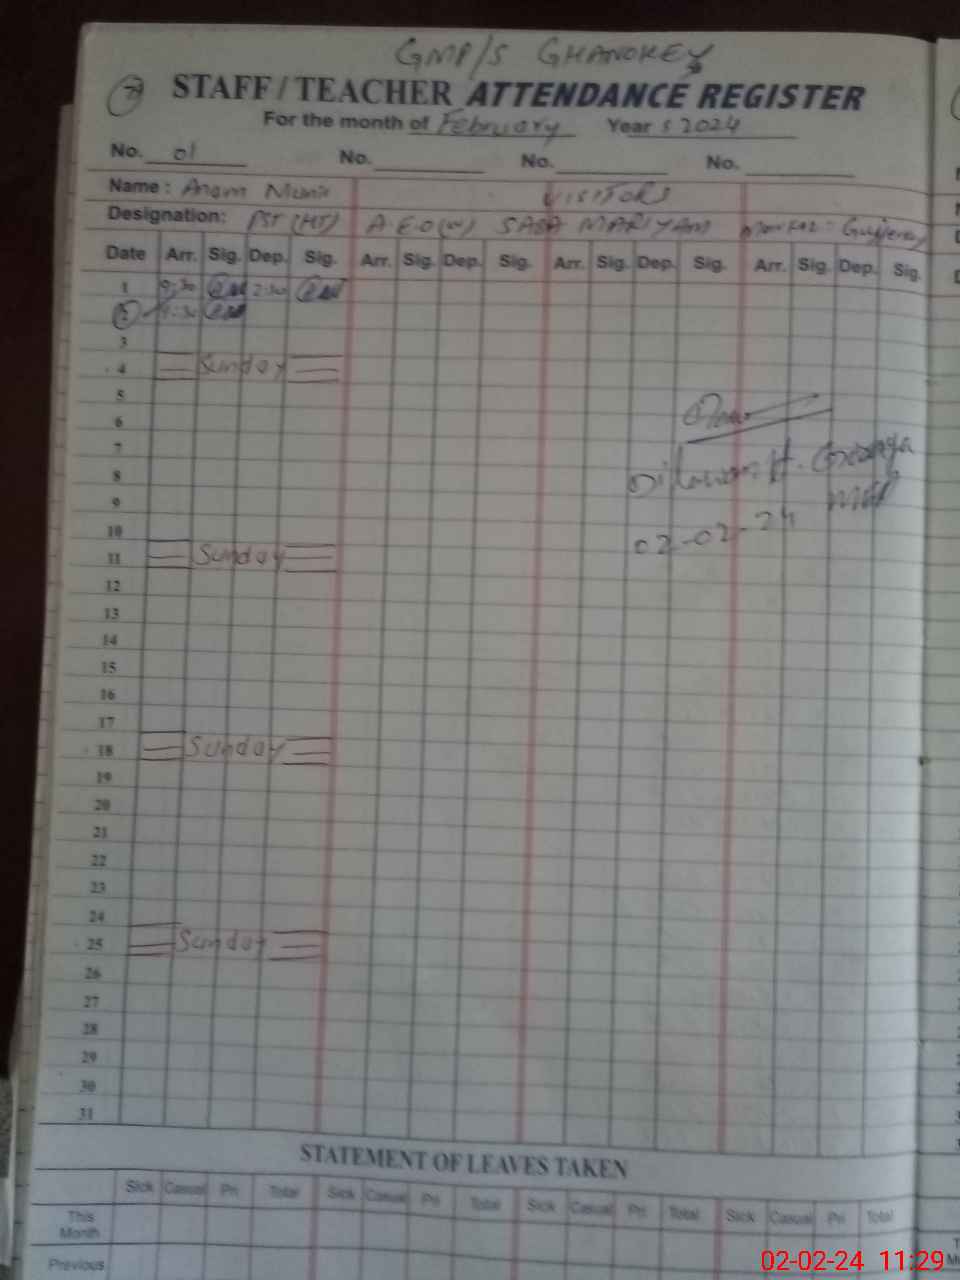 GMP/S GHANOKEY
7
STAFF / TEACHER ATTENDANCE REGISTER
For the month of February Year s 2024
No. 01 No. No. No.
Name : Anam Munir VISITORS
Designation: PST (HT) A.E.O(W) SABA MARIYAM Markaz:
Date Arr. Sig. Dep. Sig. Arr. Sig. Dep. Sig. Arr. Sig. Dep. Sig. Arr. Sig. Dep. Sig.
1 9:30 2:30
2 :30
3
4 Sunday
5
6
7
8
9
10
11 Sunday
12
13
14
15
16
17
18 Sunday
19
20
21
22
23
24
25 Sunday
26
27
28
29
30
31
02-02-24
STATEMENT OF LEAVES TAKEN
Sick Casual Pri Total Sick Casual Pri Total Sick Casual Pri Total Sick Casual Pri Total
This
Month
Previous
02-02-24 11:29